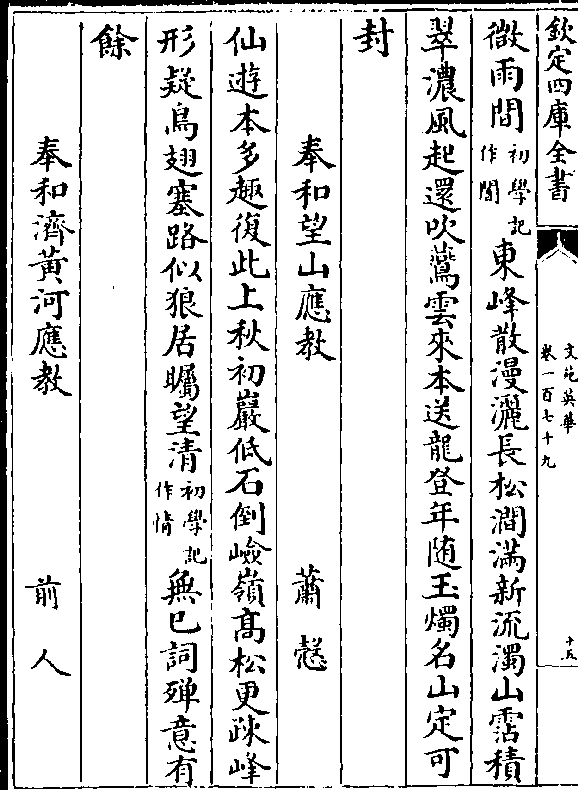 欽定四庫全書
文苑英華
卷一百七十九
十五
微雨間初學記作閒東峰散漫灑長松澗滿新流濁山霑積
翠濃風起還吹鷰雲來本送龍登年随玉燭名山定可
封
奉和望山應教 蕭慤
仙遊本多趣復此上秋初巖低石倒嶮嶺髙松更疎峰
形疑鳥翅塞路似狼居矚望清初學記作情無已詞殫意有
餘
奉和濟黃河應教 前人